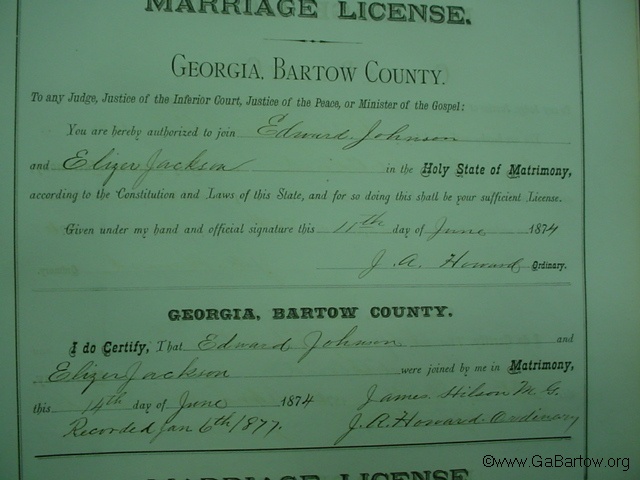 MARRIAGE LICENSE.
GEORGIA, BARTOW COUNTY.
To any Judge, Justice of the Inferior Court, Justice of the Peace, or Minister of the Gospel:
You are hereby authorized to join Edward Johnson
and Elizer Jackson in the Holy State of Matrimony,
according to the Constitution and Laws of this State, and for so doing this shall be your sufficient License.
Given under my hand and official signature this 11th day of June 1874
J. A. Howard Ordinary.
GEORGIA, BARTOW COUNTY.
I do Certify, That Edward Johnson and
Elizer Jackson were joined by me in Matrimony,
this 14th day of June 1874 James Hilson M. G.
Recorded Jan 6th 1877. J. A. Howard Ordinary
MARRIAGE LICENSE
©www.GaBartow.org